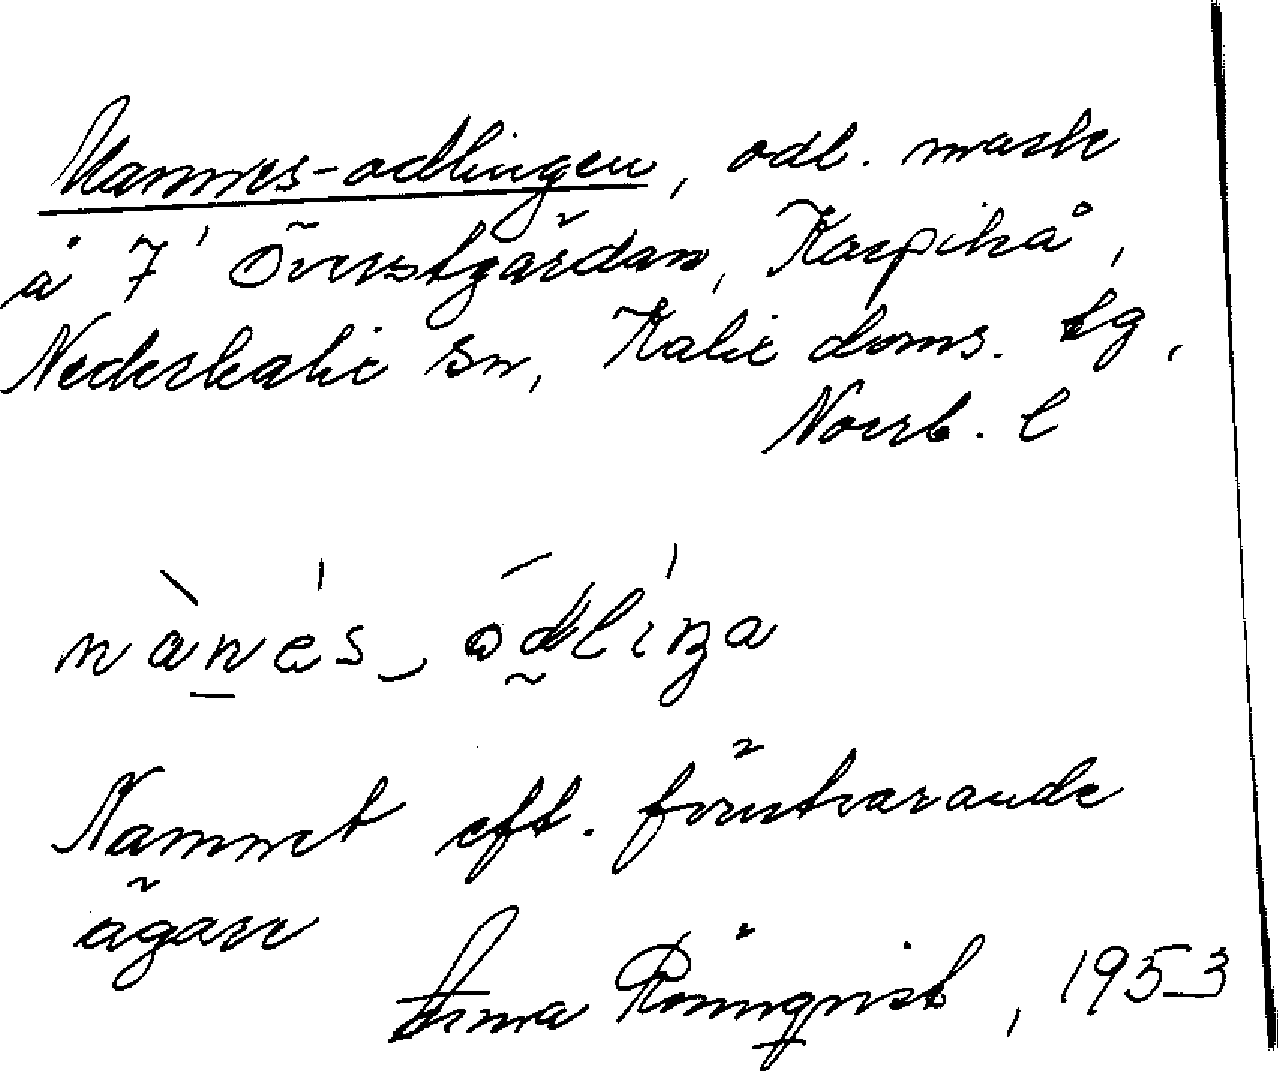 Mannes-odlingen, odl. mark
å 7' Överstgårdan, Karpikå,
Nederkalix sn, Kalix doms. lg,
Norrb. l
Namnet eft. förutvarande
ägare
Anna Rönnqvist, 1953